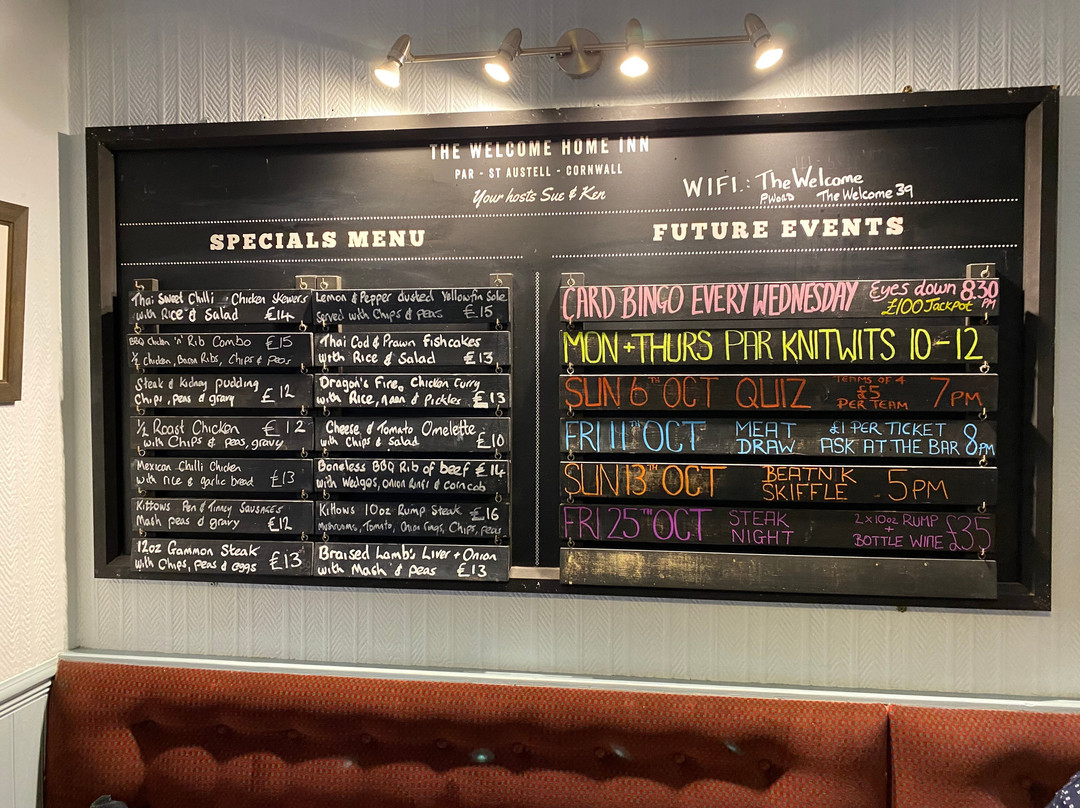 THE WELCOME HOME INN
PAR - ST AUSTELL - CORNWALL
Your hosts Sue & Ken
WIFI.: The Welcome
PWORD The Welcome 39
SPECIALS MENU
Thai Sweet Chilli Chicken Skewers
with Rice & Salad £14
BBQ Chicken 'n' Rib Combo £15
½ Chicken, Bacon Ribs, Chips & Peas
Steak & Kidney pudding
Chips, peas & gravy £12
½ Roast Chicken £12
with Chips & peas, gravy
Mexican Chilli Chicken
with rice & garlic bread £13
Kittows Pen & Tinney Sausages
Mash peas & gravy £12
12oz Gammon Steak
with Chips, peas & eggs £13
Lemon & Pepper dusted Yellowfin Sole
Served with Chips & peas £15
Thai Cod & Prawn Fishcakes
with Rice & Salad £13
Dragon's Fire Chicken Curry
with Rice, naan & Pickles £13
Cheese & Tomato Omelette
with Chips & Salad £10
Boneless BBQ Rib of beef £14
with Wedges, onion Rings & corn cob
Kittows 10oz Rump Steak £16
Mushrooms, Tomato, Onion rings, Chips, peas
Braised Lamb's Liver + Onion
with Mash & peas £13
FUTURE EVENTS
CARD BINGO EVERY WEDNESDAY Eyes down 8.30 PM
£100 Jackpot
MON + THURS PAR KNITWITS 10-12
SUN 6TH OCT QUIZ TEAMS OF 4 £5 PER TEAM 7PM
FRI 11TH OCT MEAT DRAW £1 PER TICKET ASK AT THE BAR 8PM
SUN 13TH OCT BEATNIK SKIFFLE 5PM
FRI 25TH OCT STEAK NIGHT 2 x 10oz RUMP + BOTTLE WINE £35